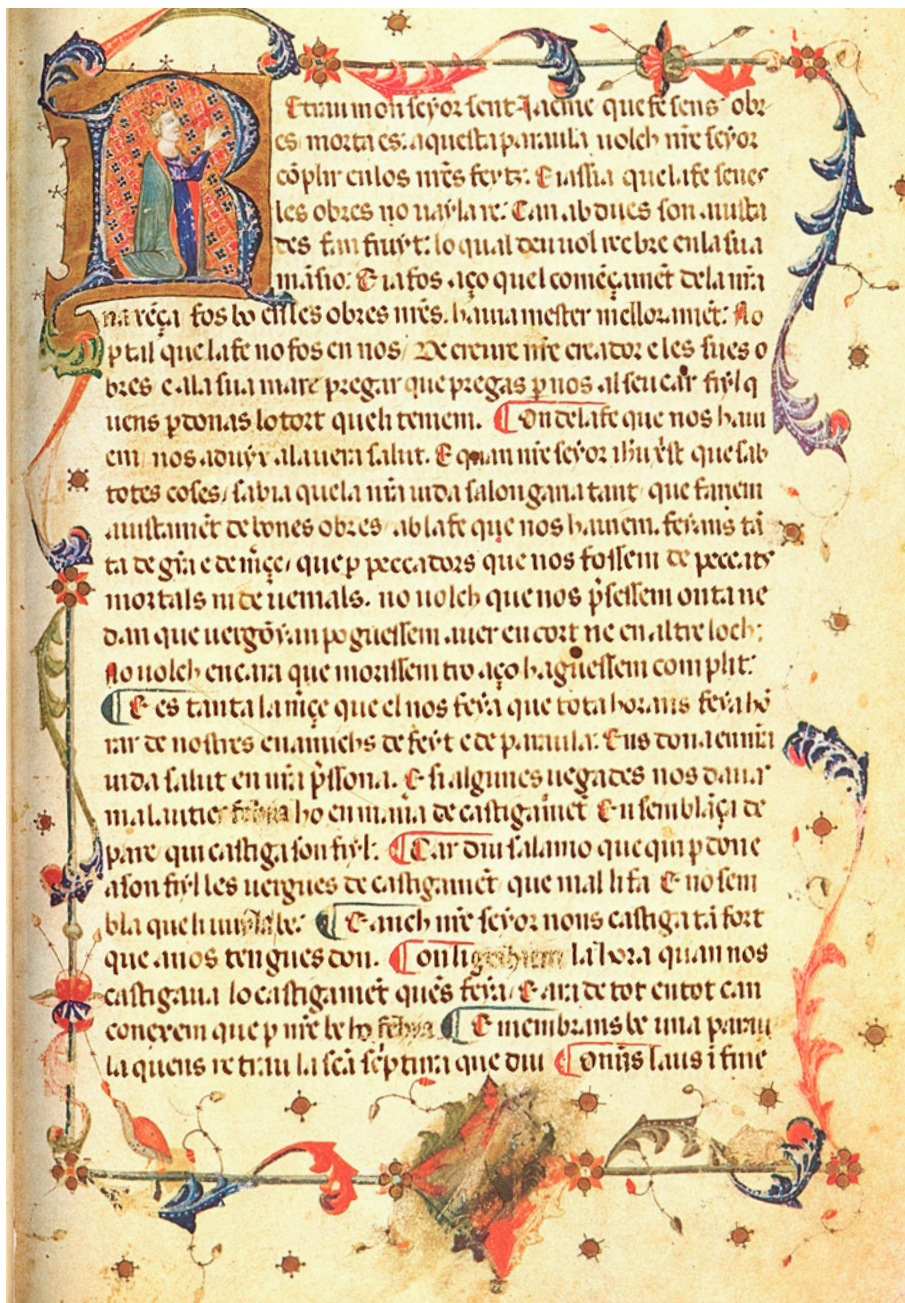 Retrau mon seyor sent Jacme que fe sens obr
es morta es: aquesta paraula uolch nr̃e seyor
cõplir en los nr̃es feyts: E iassia que la fe senes
les obres no uayla re: Can abdues son aiusta
des fan fruyt: lo qual deu uol reebre en la sua
mãsio: E ia fos aço quel comẽçamẽt de la nr̃a
naxẽça fos bo en les obres nr̃es. hauia mester melloramẽt: No
p tal que la fe no fos en nos / De creure nr̃e creador e les sues o
bres e a la sua mare pregar que pregas p nos al seu car fiyl q
uens pdonas lo tort queli teniem. On de la fe que nos haui
em nos aduyx a la uera salut. E quan nr̃e seyor ihũ xp̃st que sab
totes coses / sabia que la nr̃a uida salongana tant que fariem
aiustamẽt de bones obres ab la fe que nos hauiem. feyans tã
ta de grã e de mc̃e / que p peccadors que nos fossem de peccats
mortals ni de uenials. no uolch que nos p̃sessem onta ne
dan que uergoyan poguessem auer en cort ne en altre loch:
No uolch encara que morissem tro aço haguessem complit:
E es tanta la mc̃e que el nos feya que tota horans feya hõ
rar de nostres enamichs de feyt e de paraula: Eus dona en nr̃a
uida salut en nr̃a p̃sona. E si algunes uegades nos daua
malauties feya ho en mañra de castigamẽt En semblãça de
pare qui castiga son fiyl: Car diu salamo que qui pdone
a son fiyl les uergues de castigamẽt que mal li fa E no sem
bla que li uuyla be: E anch nr̃e seyor nons castiga tã fort
que a nos tengues dan. On li la hora quan nos
castigaua lo castigamẽt quẽs feya / E ara de tot en tot can
conexem que p nr̃e be ho feya E membrans be una parau
la quens retrau la scã sc̃ptura que diu Om̃is laus i fine